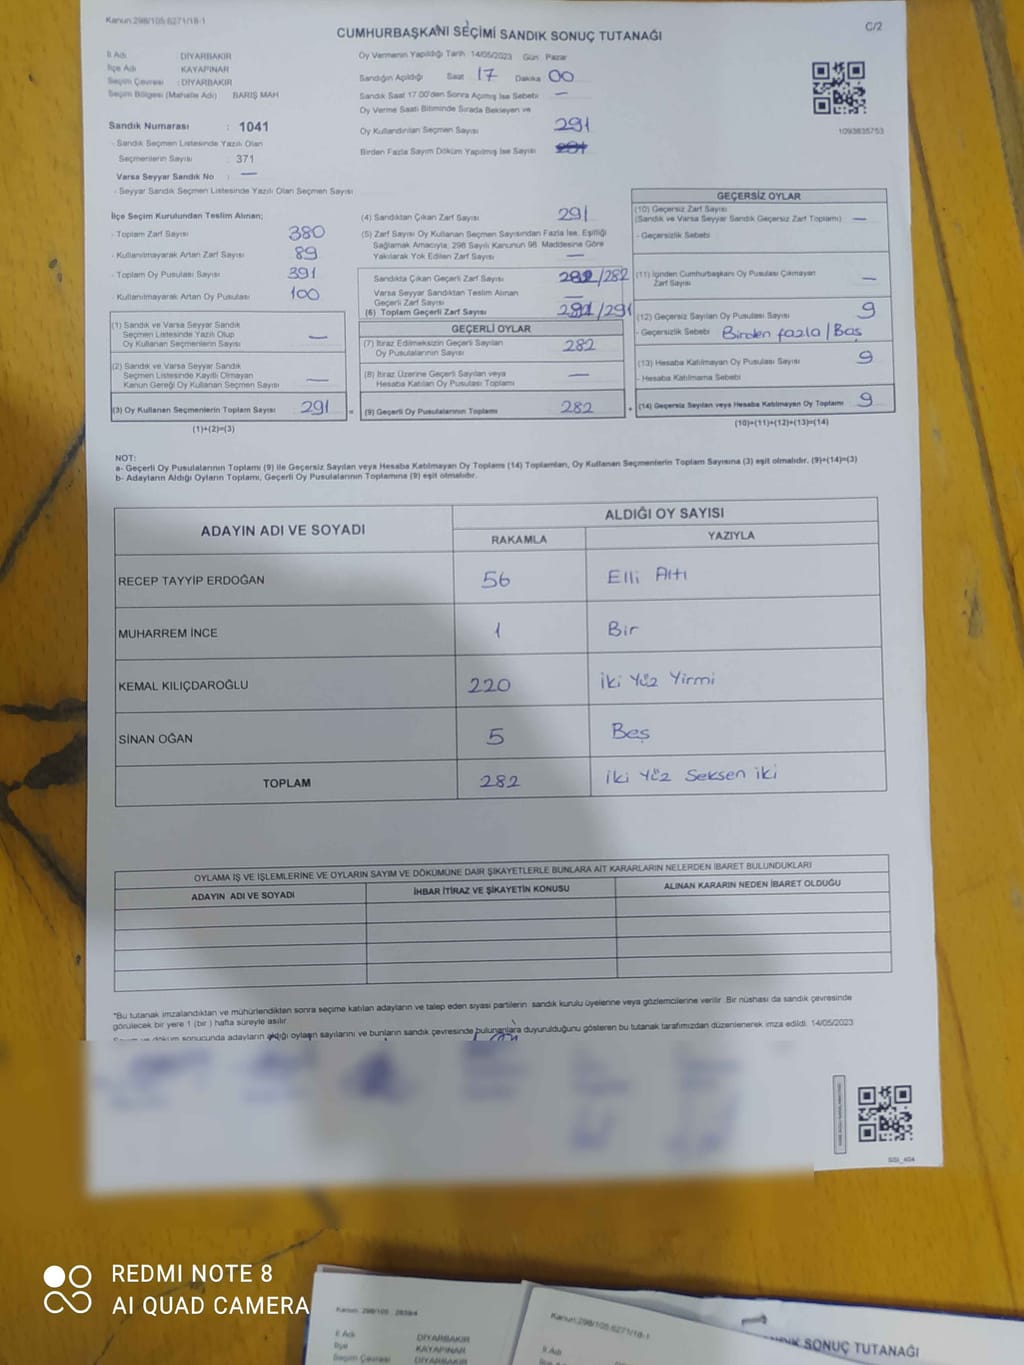 Kanun:298/105;6271/18-1
CUMHURBAŞKANI SEÇİMİ SANDIK SONUÇ TUTANAĞI
C/2
İl Adı : DİYARBAKIR
İlçe Adı : KAYAPINAR
Seçim Çevresi : DİYARBAKIR
Seçim Bölgesi (Mahalle Adı) BARIŞ MAH
Sandık Numarası : 1041
- Sandık Seçmen Listesinde Yazılı Olan
Seçmenlerin Sayısı : 371
Varsa Seyyar Sandık No : —
- Seyyar Sandık Seçmen Listesinde Yazılı Olan Seçmen Sayısı
Oy Vermenin Yapıldığı Tarih 14/05/2023 Gün Pazar
Sandığın Açıldığı Saat 17 Dakika 00
Sandık Saat 17.00'den Sonra Açılmış İse Sebebi —
Oy Verme Saati Bitiminde Sırada Bekleyen ve
Oy Kullandırılan Seçmen Sayısı 291
Birden Fazla Sayım Döküm Yapılmış İse Sayısı
1093835753
İlçe Seçim Kurulundan Teslim Alınan;
- Toplam Zarf Sayısı 380
- Kullanılmayarak Artan Zarf Sayısı 89
- Toplam Oy Pusulası Sayısı 391
- Kullanılmayarak Artan Oy Pusulası 100
(1) Sandık ve Varsa Seyyar Sandık
Seçmen Listesinde Yazılı Olup
Oy Kullanan Seçmenlerin Sayısı —
(2) Sandık ve Varsa Seyyar Sandık
Seçmen Listesinde Kayıtlı Olmayan
Kanun Gereği Oy Kullanan Seçmen Sayısı —
(3) Oy Kullanan Seçmenlerin Toplam Sayısı 291 =
(1)+(2)=(3)
(4) Sandıktan Çıkan Zarf Sayısı 291
(5) Zarf Sayısı Oy Kullanan Seçmen Sayısından Fazla İse, Eşitliği
Sağlamak Amacıyla; 298 Sayılı Kanunun 98. Maddesine Göre
Yakılarak Yok Edilen Zarf Sayısı —
Sandıkta Çıkan Geçerli Zarf Sayısı 282/282
Varsa Seyyar Sandıktan Teslim Alınan
Geçerli Zarf Sayısı —
(6) Toplam Geçerli Zarf Sayısı 291/291
GEÇERLİ OYLAR
(7) İtiraz Edilmeksizin Geçerli Sayılan
Oy Pusulalarının Sayısı 282
(8) İtiraz Üzerine Geçerli Sayılan veya
Hesaba Katılan Oy Pusulası Toplamı —
(9) Geçerli Oy Pusulalarının Toplamı 282 +
GEÇERSİZ OYLAR
(10) Geçersiz Zarf Sayısı
(Sandık ve Varsa Seyyar Sandık Geçersiz Zarf Toplamı) —
- Geçersizlik Sebebi
(11) İçinden Cumhurbaşkanı Oy Pusulası Çıkmayan
Zarf Sayısı —
(12) Geçersiz Sayılan Oy Pusulası Sayısı 9
- Geçersizlik Sebebi Birden fazla/Boş
(13) Hesaba Katılmayan Oy Pusulası Sayısı 9
- Hesaba Katılmama Sebebi
(14) Geçersiz Sayılan veya Hesaba Katılmayan Oy Toplamı 9
(10)+(11)+(12)+(13)=(14)
NOT:
a- Geçerli Oy Pusulalarının Toplamı (9) ile Geçersiz Sayılan veya Hesaba Katılmayan Oy Toplamı (14) Toplamları, Oy Kullanan Seçmenlerin Toplam Sayısına (3) eşit olmalıdır. (9)+(14)=(3)
b- Adayların Aldığı Oyların Toplamı, Geçerli Oy Pusulalarının Toplamına (9) eşit olmalıdır.
ADAYIN ADI VE SOYADI
ALDIĞI OY SAYISI
RAKAMLA YAZIYLA
RECEP TAYYİP ERDOĞAN 56 Elli Altı
MUHARREM İNCE 1 Bir
KEMAL KILIÇDAROĞLU 220 İki Yüz Yirmi
SİNAN OĞAN 5 Beş
TOPLAM 282 İki Yüz Seksen iki
OYLAMA İŞ VE İŞLEMLERİNE VE OYLARIN SAYIM VE DÖKÜMÜNE DAİR ŞİKAYETLERLE BUNLARA AİT KARARLARIN NELERDEN İBARET BULUNDUKLARI
ADAYIN ADI VE SOYADI İHBAR İTİRAZ VE ŞİKAYETİN KONUSU ALINAN KARARIN NEDEN İBARET OLDUĞU
"Bu tutanak imzalandıktan ve mühürlendikten sonra seçime katılan adayların ve talep eden siyasi partilerin sandık kurulu üyelerine veya gözlemcilerine verilir. Bir nüshası da sandık çevresinde
görülecek bir yere 1 (bir ) hafta süreyle asılır.
Sayım ve döküm sonucunda adayların aldığı oyların sayılarını ve bunların sandık çevresinde bulunanlara duyurulduğunu gösteren bu tutanak tarafımızdan düzenlenerek imza edildi. 14/05/2023
REDMI NOTE 8
AI QUAD CAMERA
Kanun:298/105
İl Adı DİYARBAKIR
İlçe KAYAPINAR
Seçim Çevresi DİYARBAKIR
Kanun:298/105;6271/18-1
İl Adı
SONUÇ TUTANAĞI